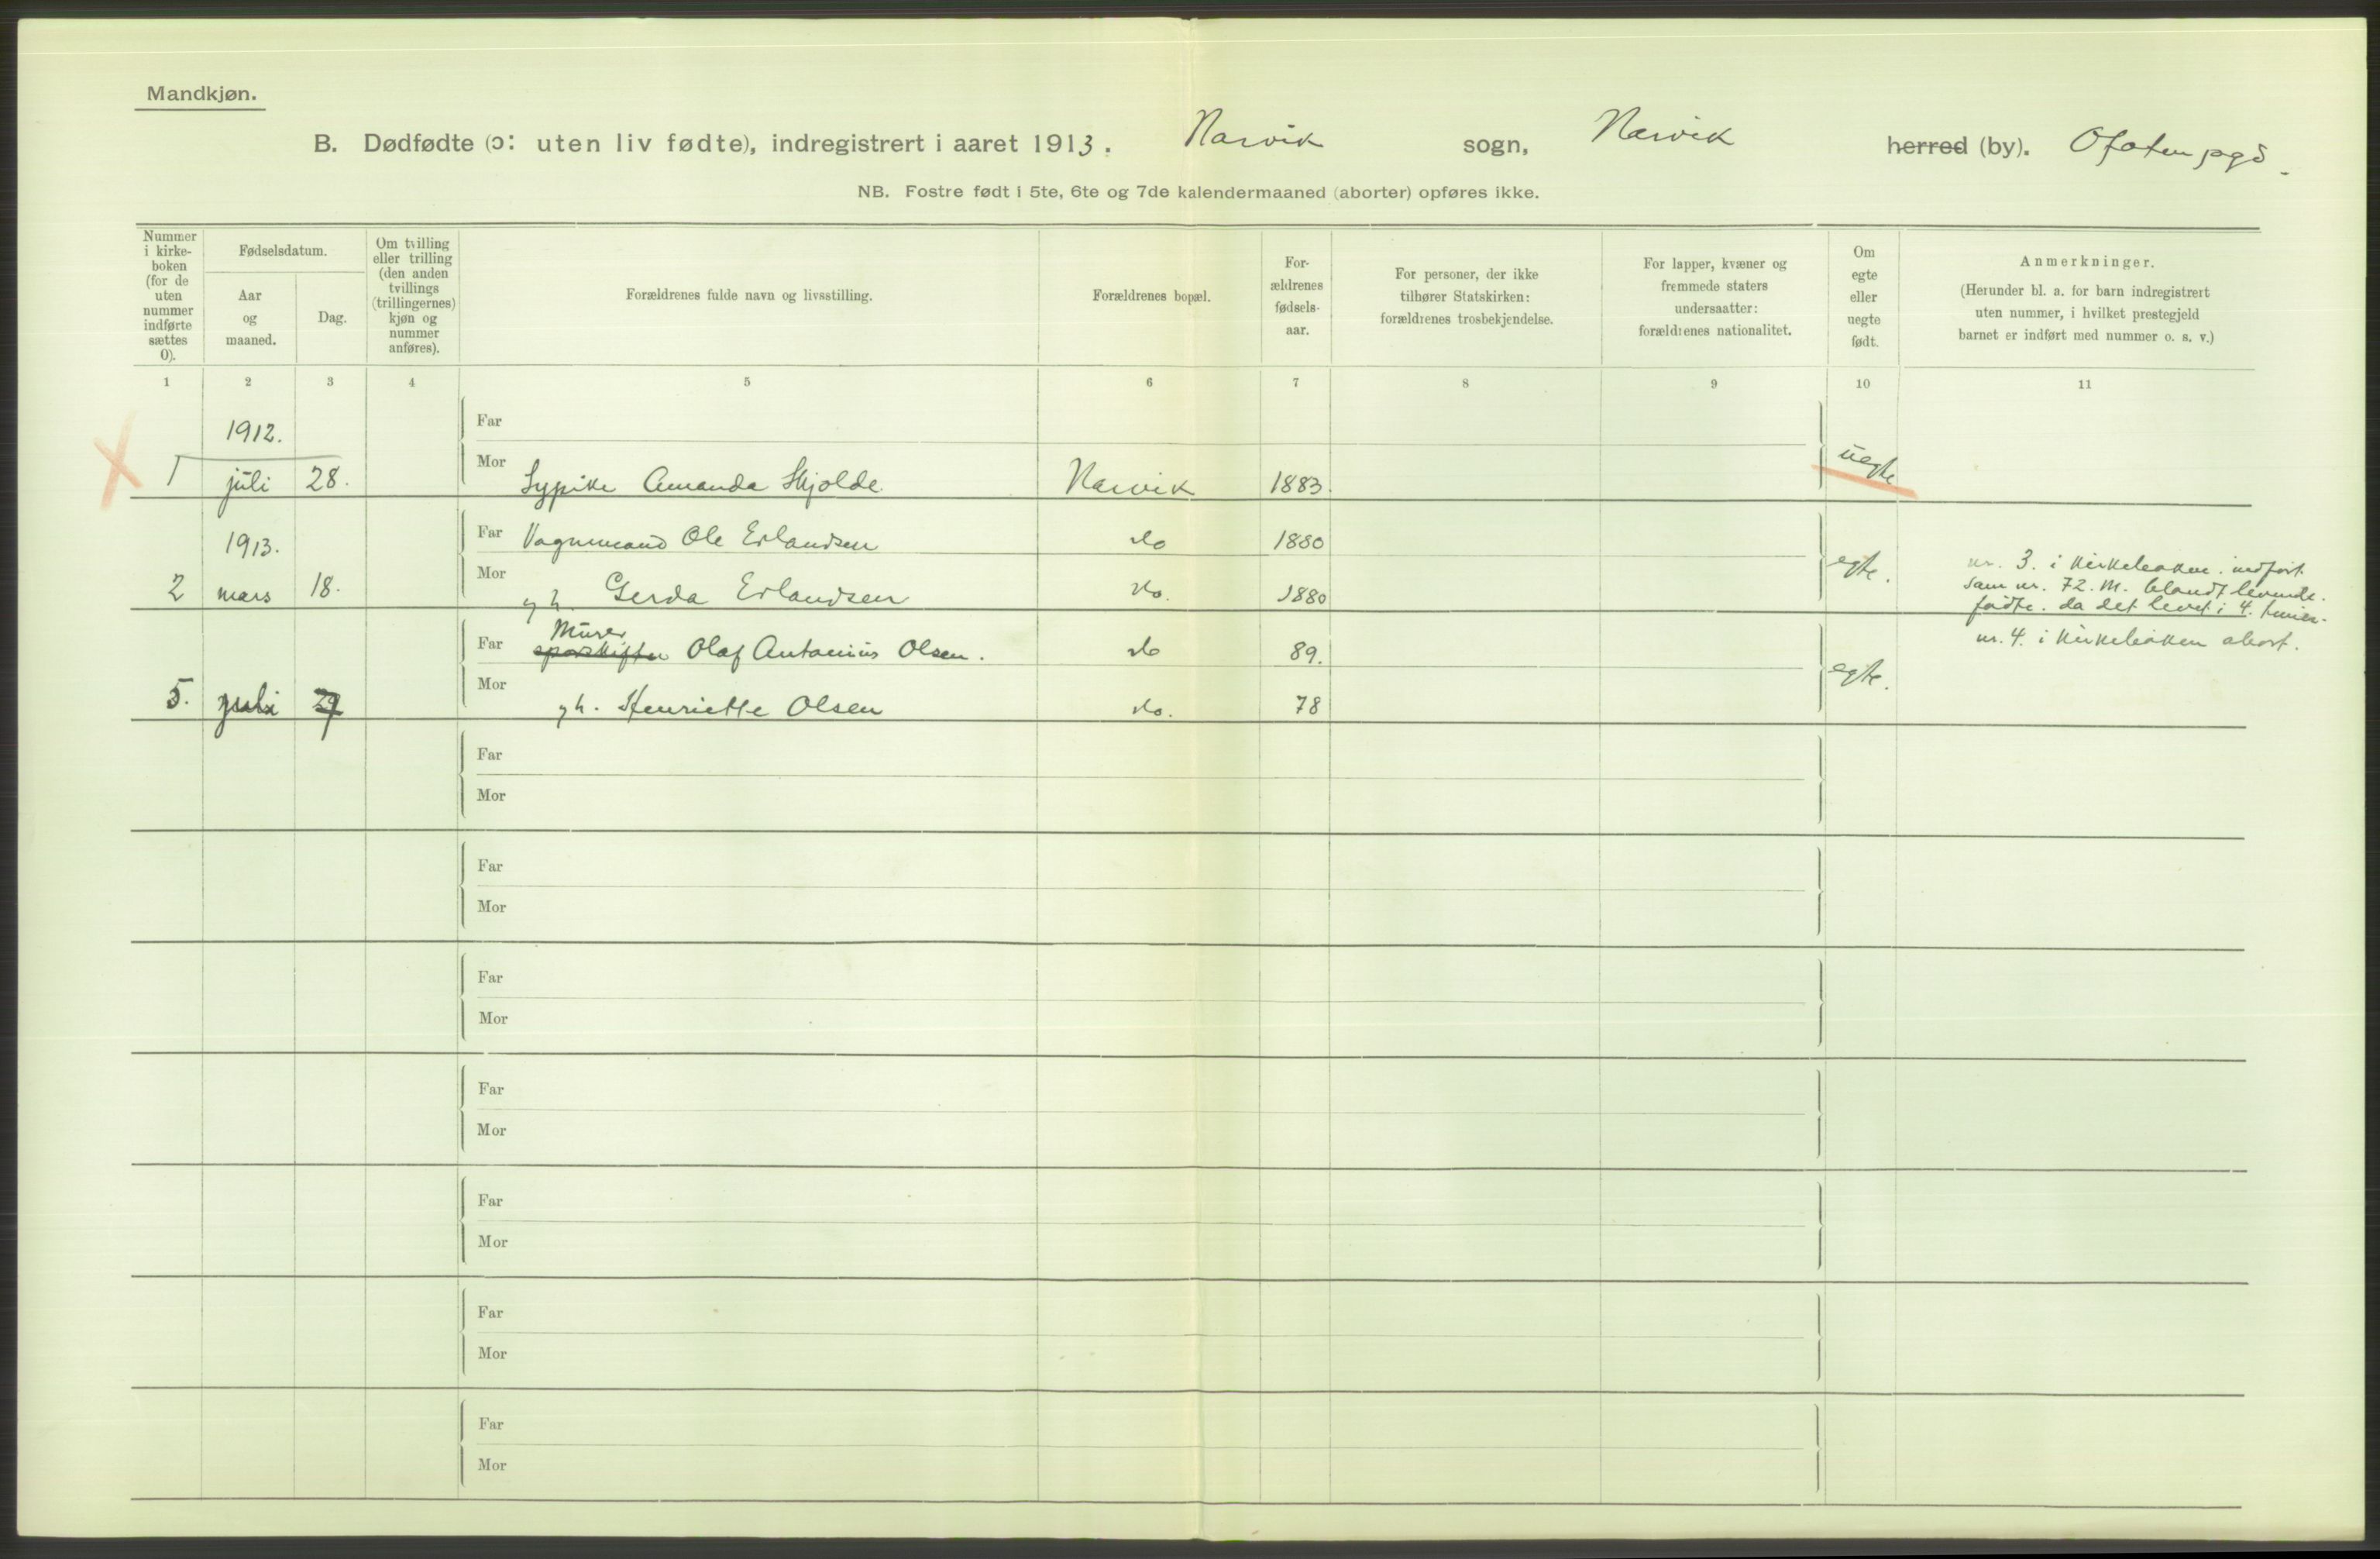 Mandkjøn.
B. Dødfødte (ɔ: uten liv fødte), indregistrert i aaret 1913. Narvik sogn, Narvik herred (by). Ofoten pgd.
NB. Fostre født i 5te, 6te og 7de kalendermaaned (aborter) opføres ikke.
Nummer i kirke-boken (for de uten nummer indførte sættes 0).
Fødselsdatum.
Aar og maaned.
Dag.
Om tvilling eller trilling (den anden tvillings (trillingernes) kjøn og nummer anføres).
Forældrenes fulde navn og livsstilling.
Forældrenes bopæl.
For-ældrenes fødsels-aar.
For personer, der ikke tilhører Statskirken: forældrenes trosbekjendelse.
For lapper, kvæner og fremmede staters undersaatter: forældrenes nationalitet.
Om egte eller uegte født.
Anmerkninger.
(Herunder bl. a. for barn indregistrert uten nummer, i hvilket prestegjeld barnet er indført med nummer o. s. v.)
1 2 3 4 5 6 7 8 9 10 11
1912.
Far
1 juli 28. Mor Sypike Amanda Skjolde Narvik 1883. uegte
1913.
Far Vognmand Ole Erlandsen do 1880
2 mars 18. Mor g h. Gerda Erlandsen do. 1880 egte.
nr. 3. i kirkeboken. indført
som nr. 72. M. blandt levende.
fødte. da det levet i 4. timer.
Murer
Far sporskifter Olaf Antonius Olsen. do 89.
nr. 4. i kirkeboken abort.
5. juli 27 Mor gh. Henriette Olsen do. 78 egte.
Far
Mor
Far
Mor
Far
Mor
Far
Mor
Far
Mor
Far
Mor
Far
Mor